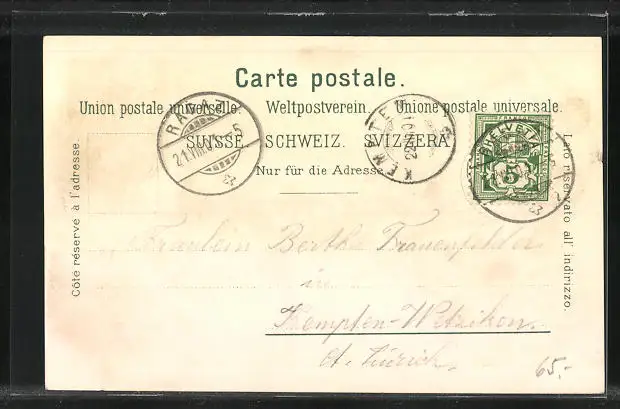 Carte postale.
Union postale universelle. Weltpostverein. Unione postale universale.
SUISSE. SCHWEIZ. SVIZZERA
Nur für die Adresse
Côté réservé à l'adresse.
Lato riservato all' indirizzo.
RAGAZ
KEMPTEN
HELVETIA
5
Fräulein Bertha
in
Kempten-Wetzikon.
Ct. Zürich.
65.-